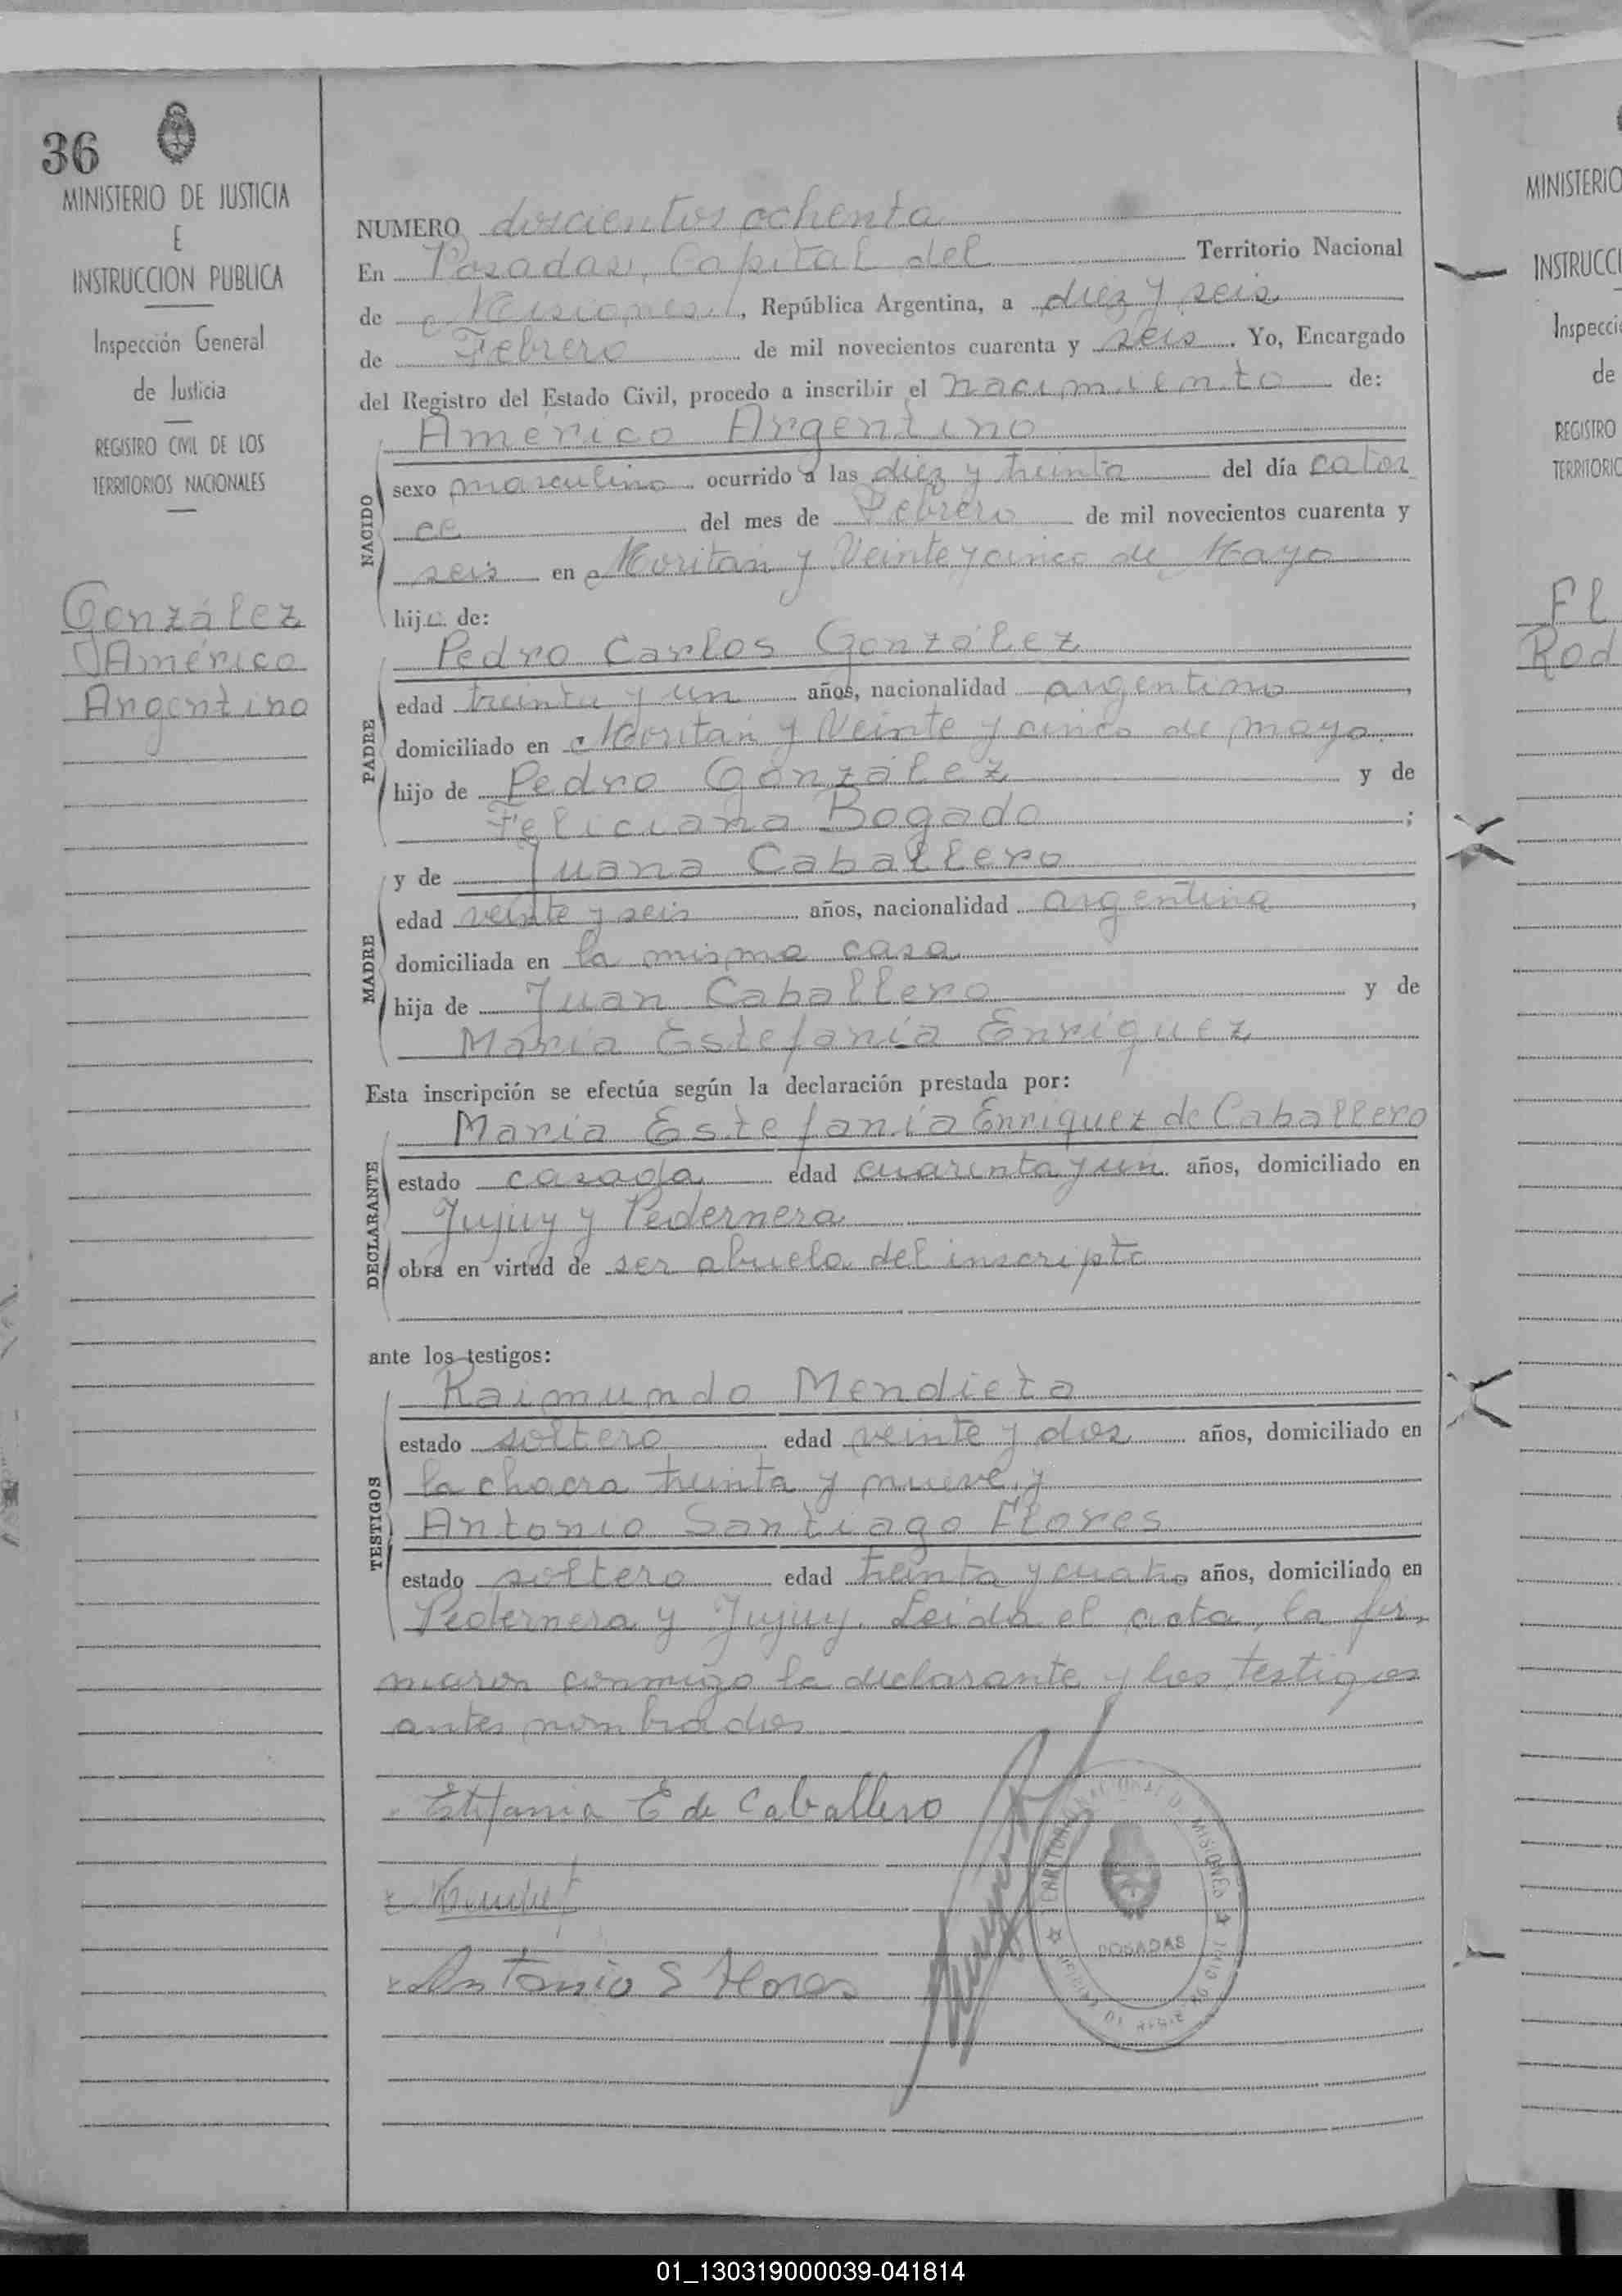 36
MINISTERIO DE JUSTICIA
E
INSTRUCCION PUBLICA
Inspección General
de Justicia
REGISTRO CIVIL DE LOS
TERRITORIOS NACIONALES
González
Américo
Argentino
NUMERO doscientos ochenta
En Posadas, Capital del Territorio Nacional
de Misiones, República Argentina, a diez y seis
de Febrero de mil novecientos cuarenta y seis. Yo, Encargado
del Registro del Estado Civil, procedo a inscribir el nacimiento de:
NACIDO
Américo Argentino
sexo masculino ocurrido a las diez y treinta del día cator
ce del mes de Febrero de mil novecientos cuarenta y
seis en Moritán y Veinte y cinco de Mayo
hijo de:
PADRE
Pedro Carlos González
edad treinta y un años, nacionalidad argentino,
domiciliado en Moritán y Veinte y cinco de mayo
hijo de Pedro González y de
Feliciana Bogado;
MADRE
y de Juana Caballero
edad veinte y seis años, nacionalidad argentina,
domiciliada en la misma casa
hija de Juan Caballero y de
María Estefanía Enriquez
Esta inscripción se efectúa según la declaración prestada por:
DECLARANTE
María Estefanía Enriquez de Caballero
estado casada edad cuarenta y un años, domiciliado en
Jujuy y Pedernera
obra en virtud de ser abuela del inscripto
ante los testigos:
TESTIGOS
Raimundo Mendieta
estado soltero edad veinte y dos años, domiciliado en
la chacra treinta y nueve y
Antonio Santiago Flores
estado soltero edad treinta y cuatro años, domiciliado en
Pedernera y Jujuy. Leida el acta, la fir-
maron conmigo la declarante y los testigos
antes nombrados
Estefania E de Caballero
Antonio S Flores
POSADAS
MINISTERIO
INSTRUCCI
Inspecci
de
REGISTRO
TERRITORIO
Fl
Rod
01_130319000039-041814